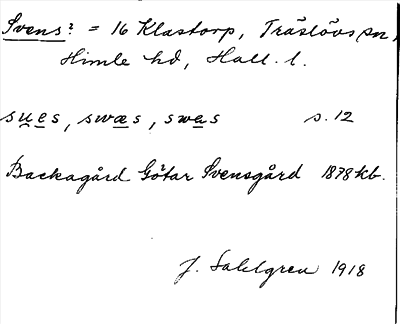 Svens? = 16 Klastorp, Träslövs sn,
Himle hd, Hall. l.
sues, swæs, swas s. 12
Backagård Götar Svensgård 1878 kb.
J. Sahlgren 1918